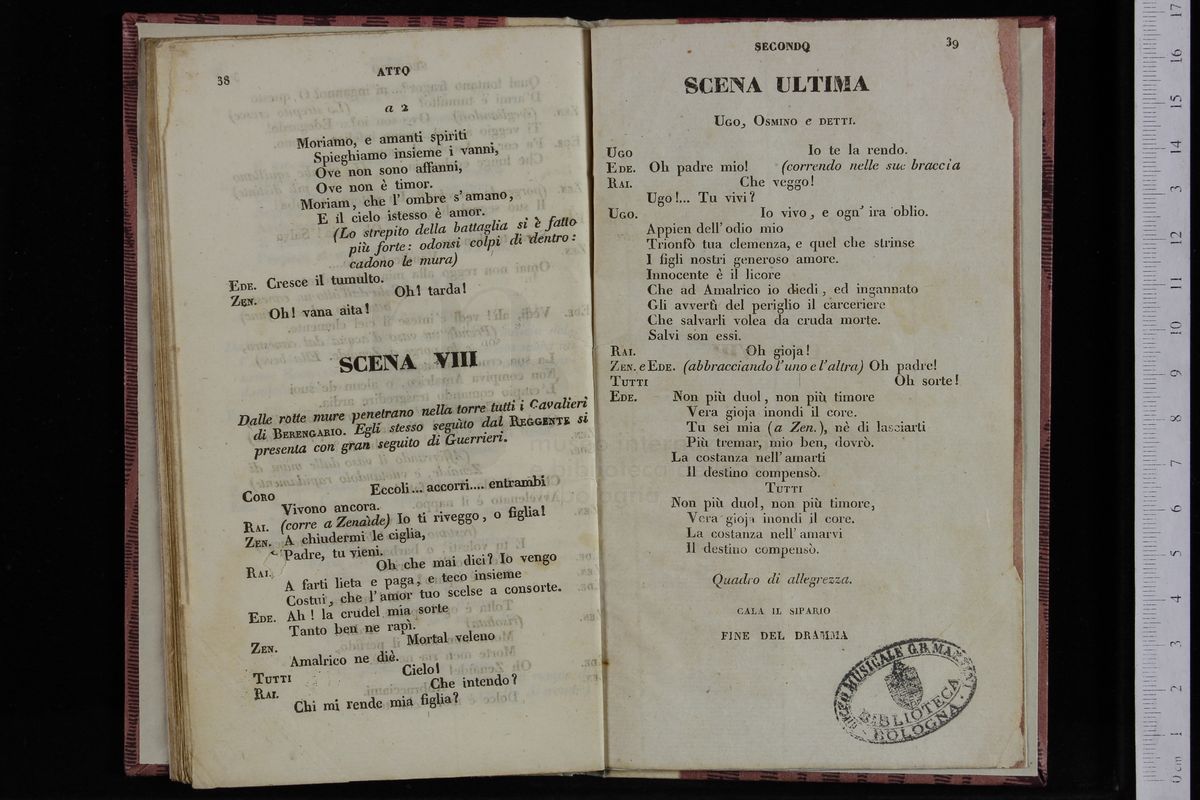 38
ATTO
a 2
Moriamo, e amanti spiriti
Spieghiamo insieme i vanni,
Ove non sono affanni,
Ove non è timor.
Moriam, che l'ombre s'amano,
E il cielo istesso è amor.
(Lo strepito della battaglia si è fatto
più forte: odonsi colpi di dentro:
cadono le mura)
EDE. Cresce il tumulto.
ZEN. Oh! tarda!
Oh! vana aita!
SCENA VIII
Dalle rotte mure penetrano nella torre tutti i Cavalieri
di BERENGARIO. Egli stesso seguìto dal REGGENTE si
presenta con gran seguito di Guerrieri.
CORO Eccoli... accorri.... entrambi
Vivono ancora.
RAI. (corre a Zenaide) Io ti riveggo, o figlia!
ZEN. A chiudermi le ciglia,
Padre, tu vieni.
RAI. Oh che mai dici? Io vengo
A farti lieta e paga, e teco insieme
Costui, che l'amor tuo scelse a consorte.
EDE. Ah! la crudel mia sorte
Tanto ben ne rapì.
ZEN. Mortal veleno
Amalrico ne diè.
TUTTI Cielo!
RAI. Che intendo?
Chi mi rende mia figlia?
SECONDO
39
SCENA ULTIMA
UGO, OSMINO e DETTI.
UGO Io te la rendo.
EDE. Oh padre mio! (correndo nelle sue braccia
RAI. Che veggo!
Ugo!... Tu vivi?
UGO. Io vivo, e ogn' ira oblio.
Appien dell'odio mio
Trionfò tua clemenza, e quel che strinse
I figli nostri generoso amore.
Innocente è il licore
Che ad Amalrico io diedi, ed ingannato
Gli avvertì del periglio il carceriere
Che salvarli volea da cruda morte.
Salvi son essi.
RAI. Oh gioja!
ZEN. e EDE. (abbracciando l'uno e l'altra) Oh padre!
TUTTI Oh sorte!
EDE. Non più duol, non più timore
Vera gioja inondi il core.
Tu sei mia (a Zen.), nè di lasciarti
Più tremar, mio ben, dovrò.
La costanza nell'amarti
Il destino compensò.
TUTTI
Non più duol, non più timore,
Vera gioja inondi il core.
La costanza nell'amarvi
Il destino compensò.
Quadro di allegrezza.
CALA IL SIPARIO
FINE DEL DRAMMA
LICEO MUSICALE G.B. MARTINI
BIBLIOTECA
BOLOGNA
0 cm 1 2 3 4 5 6 7 8 9 10 11 12 13 14 15 16 17